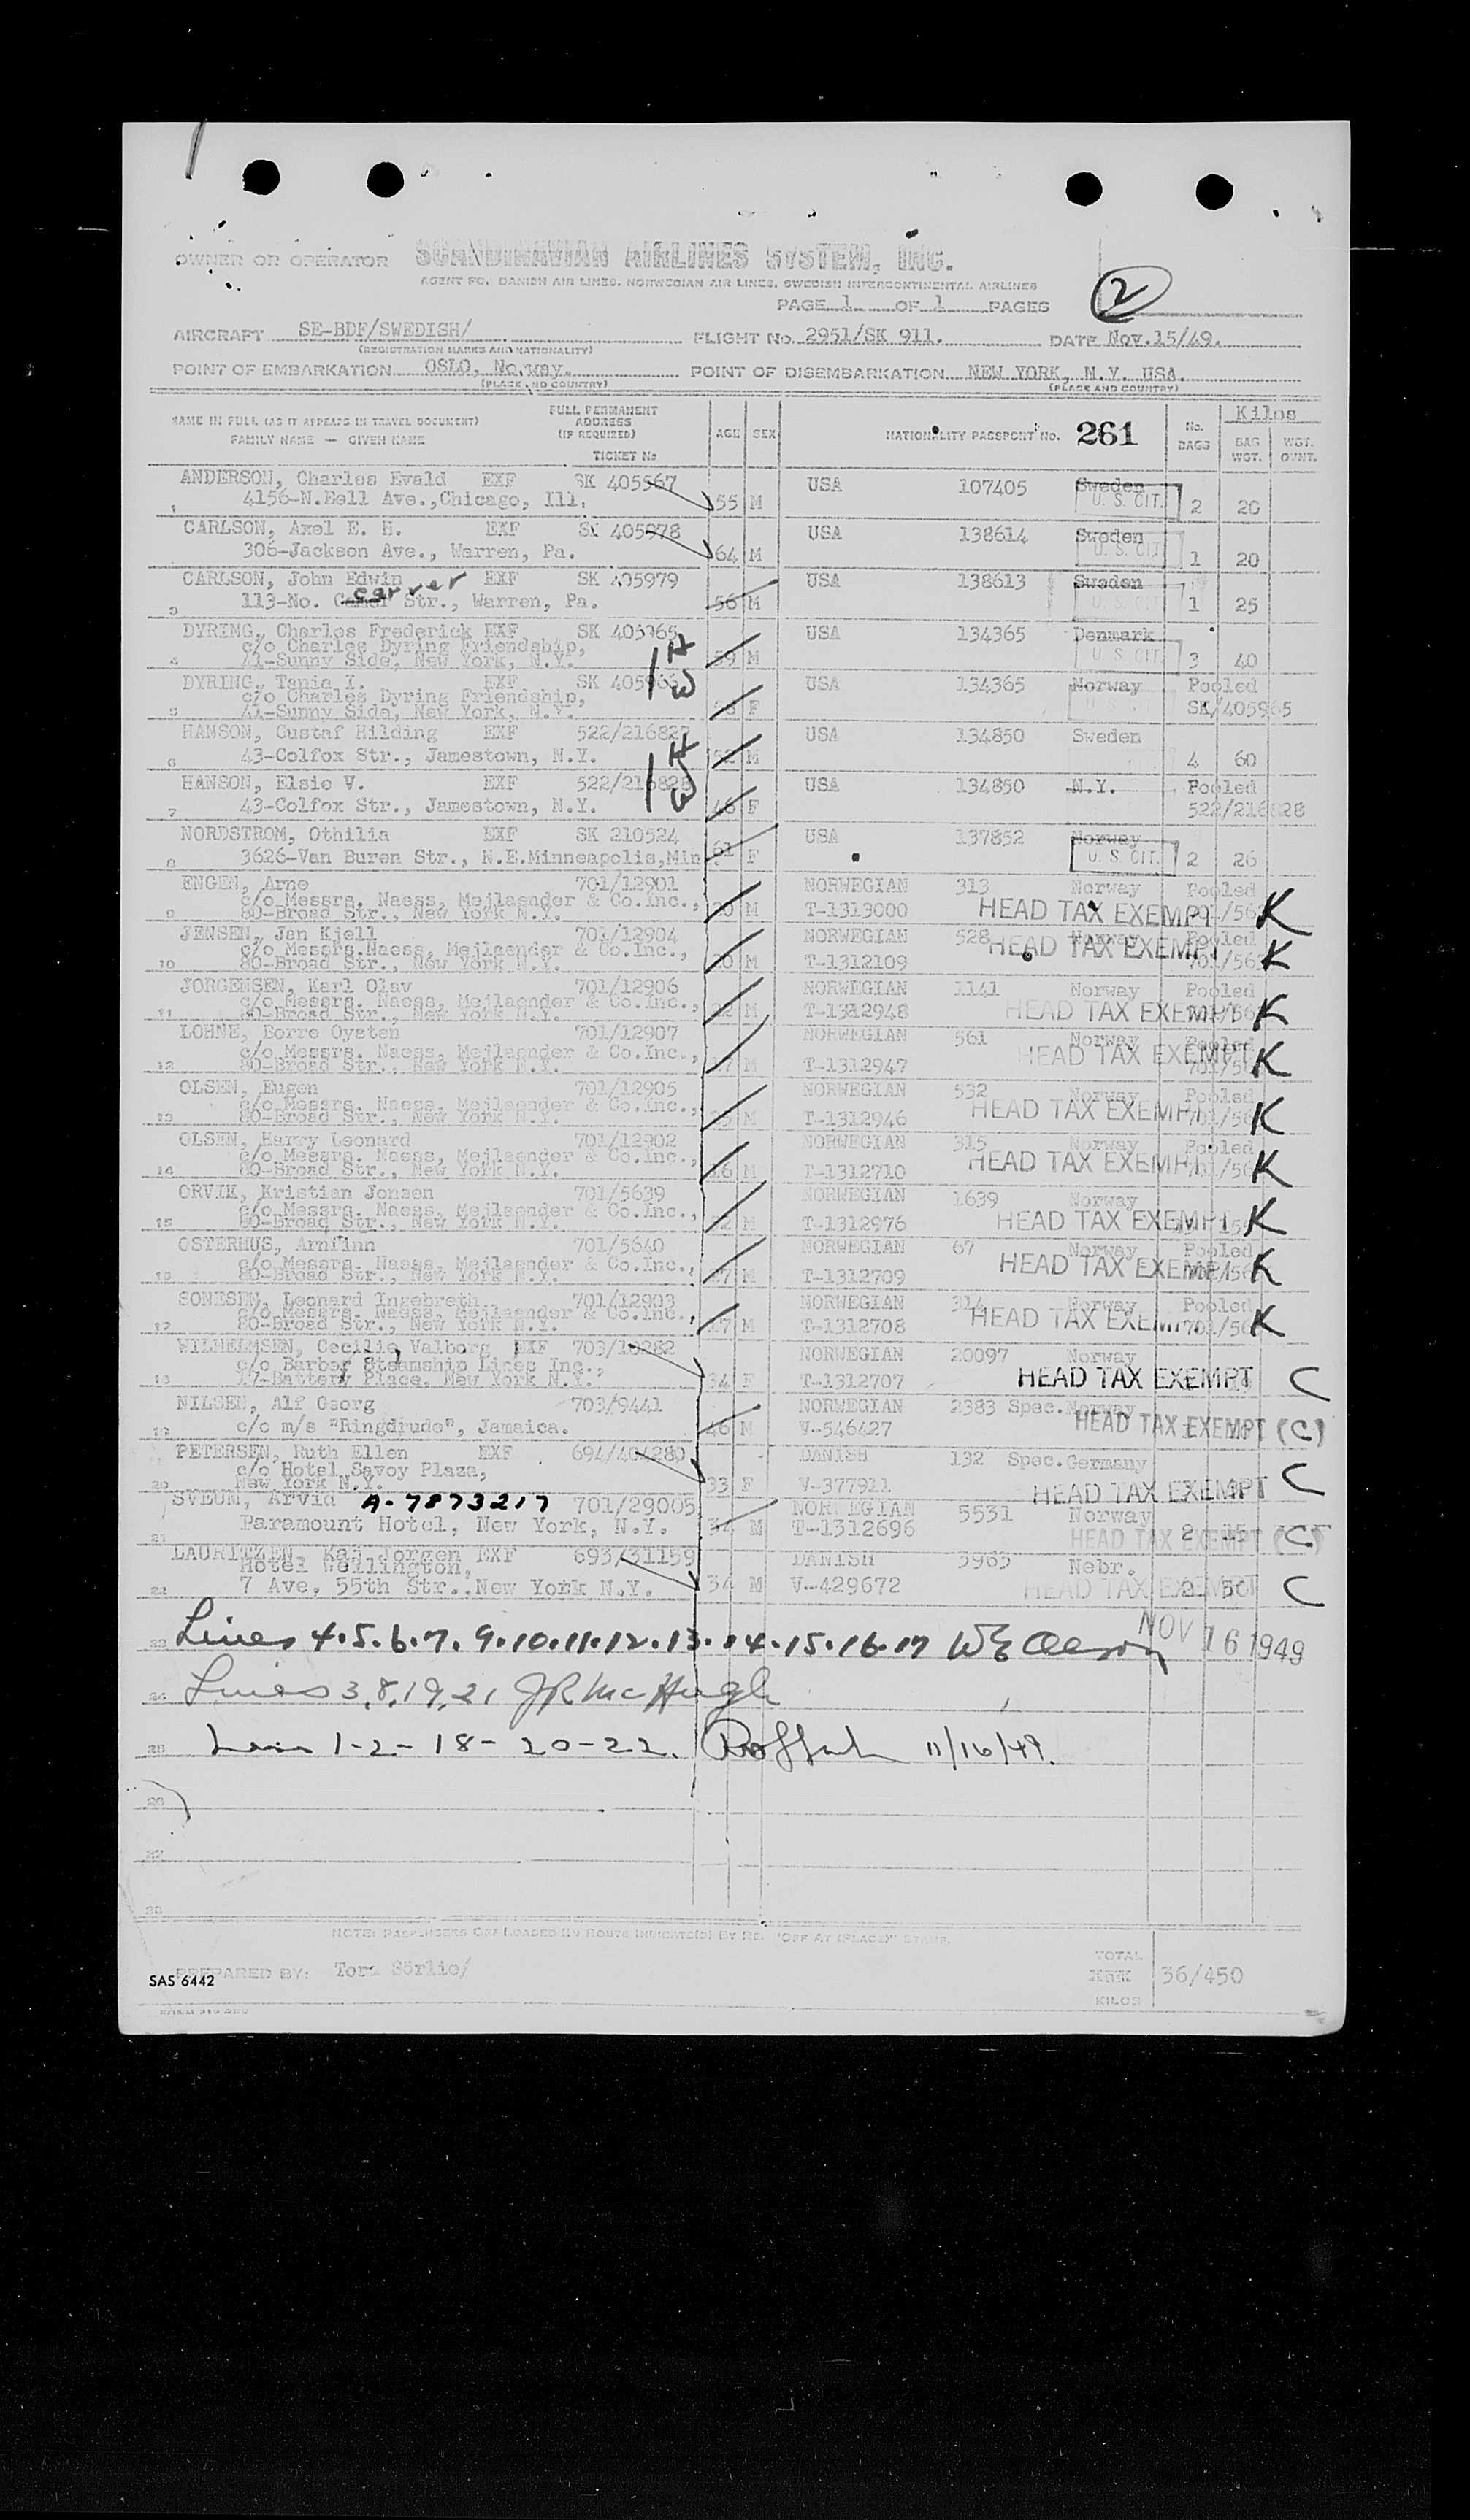 OWNER OR OPERATOR SCANDINAVIAN AIRLINES SYSTEM, INC.
AGENT FOR DANISH AIR LINES, NORWEGIAN AIR LINES, SWEDISH INTERCONTINENTAL AIRLINES
PAGE 1 OF 1 PAGES
2
AIRCRAFT SE-BDF/SWEDISH/ FLIGHT No. 2951/SK 911. DATE Nov.15/49.
(REGISTRATION MARKS AND NATIONALITY)
POINT OF EMBARKATION OSLO, Norway. POINT OF DISEMBARKATION NEW YORK, N.Y. USA.
(PLACE AND COUNTRY) (PLACE AND COUNTRY)
NAME IN FULL (AS IT APPEARS IN TRAVEL DOCUMENT) FULL PERMANENT ADDRESS (IF REQUIRED) AGE SEX NATIONALITY PASSPORT No. 261 No. BAGS Kilos
FAMILY NAME — GIVEN NAME TICKET No BAG WGT. WGT. OVWT.
ANDERSON, Charles Evald EXF SK 405567 USA 107405 Sweden
1 4156-N.Bell Ave.,Chicago, Ill. 55 M U. S. CIT. 2 20
CARLSON, Axel E. H. EXF SK 405978 USA 138614 Sweden
306-Jackson Ave., Warren, Pa. 64 M U. S. CIT. 1 20
CARLSON, John Edwin EXF SK 405979 USA 138613 Sweden
carver
3 113-No. Str., Warren, Pa. 56 M U. S. CIT. 1 25
DYRING, Charles Frederick EXF SK 405965 USA 134365 Denmark
c/o Charles Dyring Friendship,
4 41-Sunny Side, New York, N.Y. 59 M U. S. CIT. 3 40
H
W
DYRING, Tania I. EXF SK USA 134365 Norway Pooled
c/o Charles Dyring Friendship, SK/405965
5 41-Sunny Side, New York, N.Y. F
HANSON, Gustaf Hilding EXF USA 134850 Sweden
6 43-Colfox Str., Jamestown, N.Y. 52 M 4 60
H
W
HANSON, Elsie V. EXF 522/216828 USA 134850 N.Y. Pooled
7 43-Colfox Str., Jamestown, N.Y. 46 F 522/216828
NORDSTROM, Othilia EXF SK 210524 USA 137852 Norway
8 3626-Van Buren Str., N.E.Minneapolis,Min. 61 F U. S. CIT. 2 26
ENGEN, Arne 701/12901 NORWEGIAN 313 Norway Pooled
c/o Messrs. Naess, Mejlaender & Co.Inc.,
9 80-Broad Str., New York N.Y. M T-1313000 HEAD TAX EXEMPT K
JENSEN, Jan Kjell 701/12904 NORWEGIAN 528 Norway Pooled
c/o Messrs.Naess, Mejlaender & Co.Inc.,
10 80-Broad Str., New York N.Y. M T-1312109 HEAD TAX EXEMPT K
JORGENSEN, Karl Olav 701/12906 NORWEGIAN 1141 Norway Pooled
c/o Messrs. Naess, Mejlaender & Co.Inc.,
11 80-Broad Str., New York N.Y. M T-1312948 HEAD TAX EXEMPT K
LOHNE, Borre Oysten 701/12907 NORWEGIAN 561 Norway Pooled
c/o Messrs. Naess, Mejlaender & Co.Inc.,
12 80-Broad Str., New York N.Y. M T-1312947 HEAD TAX EXEMPT K
OLSEN, Eugen 701/12905 NORWEGIAN 532 Norway Pooled
c/o Messrs. Naess, Mejlaender & Co.Inc.,
13 80-Broad Str., New York N.Y. M T-1312946 HEAD TAX EXEMPT K
OLSEN, Harry Leonard 701/12902 NORWEGIAN 315 Norway Pooled
c/o Messrs. Naess, Mejlaender & Co.Inc.,
14 80-Broad Str., New York N.Y. M T-1312710 HEAD TAX EXEMPT K
ORVIK, Kristian Jonsen 701/5639 NORWEGIAN 1639 Norway
c/o Messrs. Naess, Mejlaender & Co.Inc.,
15 80-Broad Str., New York N.Y. M T-1312976 HEAD TAX EXEMPT K
OSTERHUS, Arnfinn 701/5640 NORWEGIAN 67 Norway Pooled
c/o Messrs. Naess, Mejlaender & Co.Inc.,
16 80-Broad Str., New York N.Y. M T-1312709 HEAD TAX EXEMPT K
SONESEN, Leonard Ingebreth 701/12903 NORWEGIAN 314 Norway Pooled
c/o Messrs. Naess, Mejlaender & Co.Inc.,
17 80-Broad Str., New York N.Y. M T-1312708 HEAD TAX EXEMPT K
WILHELMSEN, Cecilie Valborg EXF 703/10282 NORWEGIAN 20097 Norway
c/o Barber Steamship Lines Inc.,
18 17-Battery Place, New York N.Y. 34 F T-1312707 HEAD TAX EXEMPT C
NILSEN, Alf Georg 703/9441 NORWEGIAN 2383 Spec.Norway
19 c/o m/s "Ringdrude", Jamaica. 46 M V-546427 HEAD TAX EXEMPT (C)
PETERSEN, Ruth Ellen EXF 694/404280 DANISH 132 Spec.Germany
c/o Hotel Savoy Plaza,
20 New York N.Y. 33 F V-377911 HEAD TAX EXEMPT C
SVEUM, Arvid A-7873217 701/29005 NORWEGIAN 5531 Norway
21 Paramount Hotel, New York, N.Y. M T-1312696 HEAD TAX EXEMPT 2 15 (C)
LAURITZEN, Kaj Jorgen EXF 693/31159 DANISH 3963 Nebr.
Hotel Wellington,
22 7 Ave, 55th Str.,New York N.Y. 34 M V-429672 HEAD TAX EXEMPT 2 C
NOV 16 1949
23 Lines 4.5.6.7. 9.10.11.12.13.14.15.16.17
24 Lines 3,8,19,21 JR McHugh
25 Lines 1-2-18-20-22. 11/16/49.
26
27
28
NOTE: PASSENGERS OFF LOADED EN ROUTE INDICATE(D) BY "OFF AT (PLACE)" STAMP.
SAS 6442 PREPARED BY: Tore Sörlie/ TOTAL 36/450
KILOS